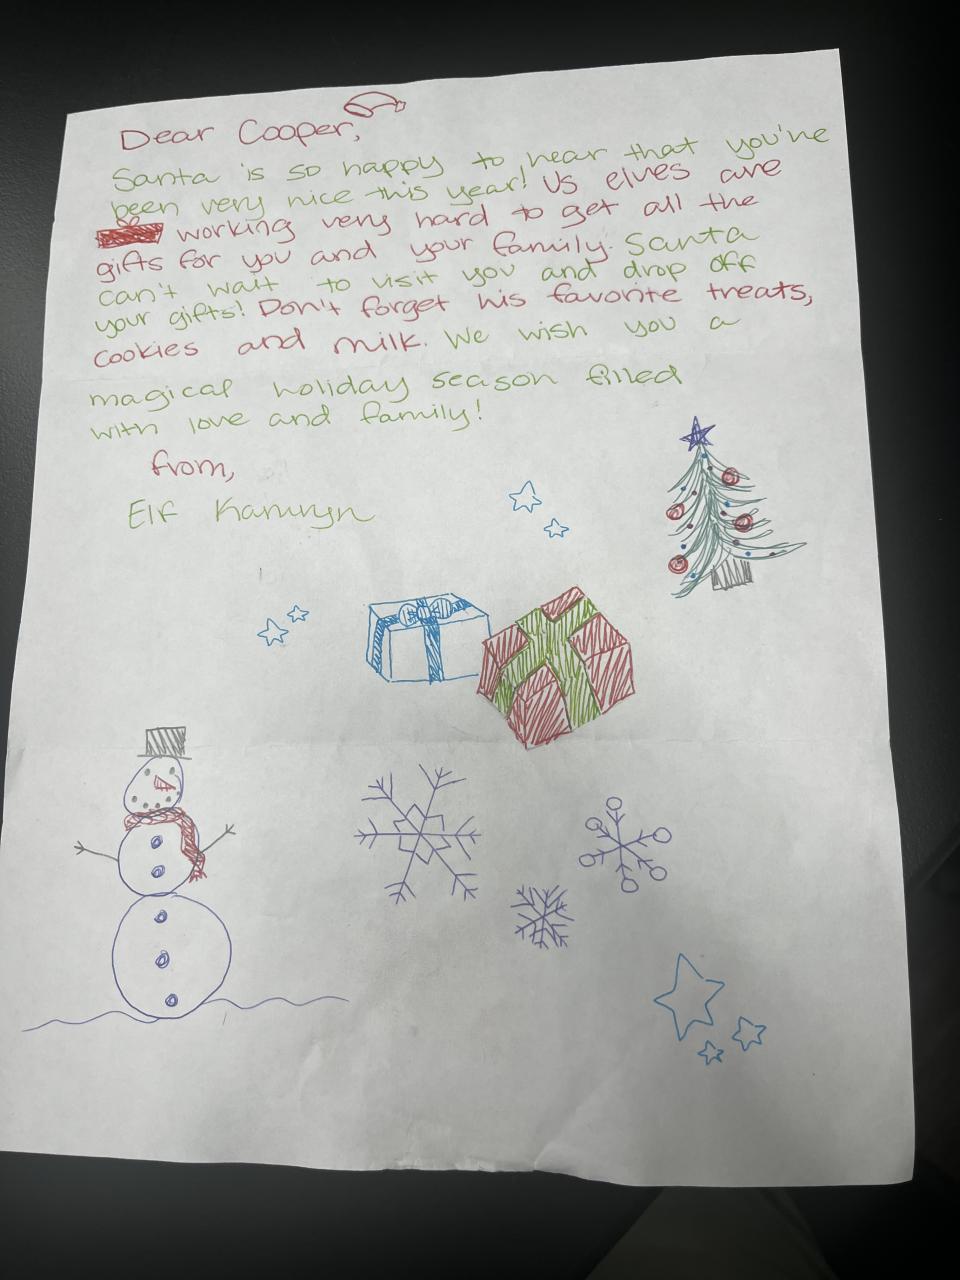 Dear Cooper,
Santa is so happy to hear that you've
been very nice this year! Us elves are
working very hard to get all the
gifts for you and your family. Santa
can't wait to visit you and drop off
your gifts! Don't forget his favorite treats,
cookies and milk. We wish you a
magical holiday season filled
with love and family!
from,
Elf Kamryn